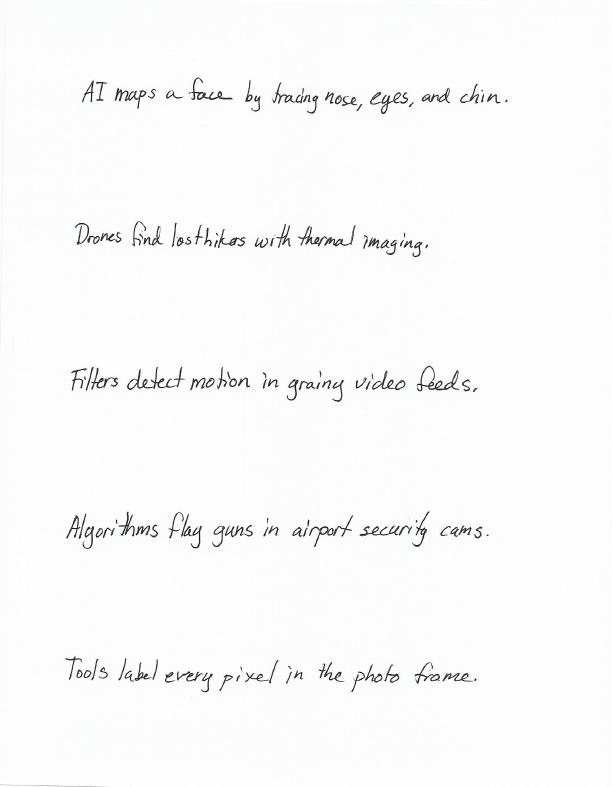 AI maps a face by tracing nose, eyes, and chin.
Drones find lost hikers with thermal imaging.
Filters detect motion in grainy video feeds.
Algorithms flag guns in airport security cams.
Tools label every pixel in the photo frame.